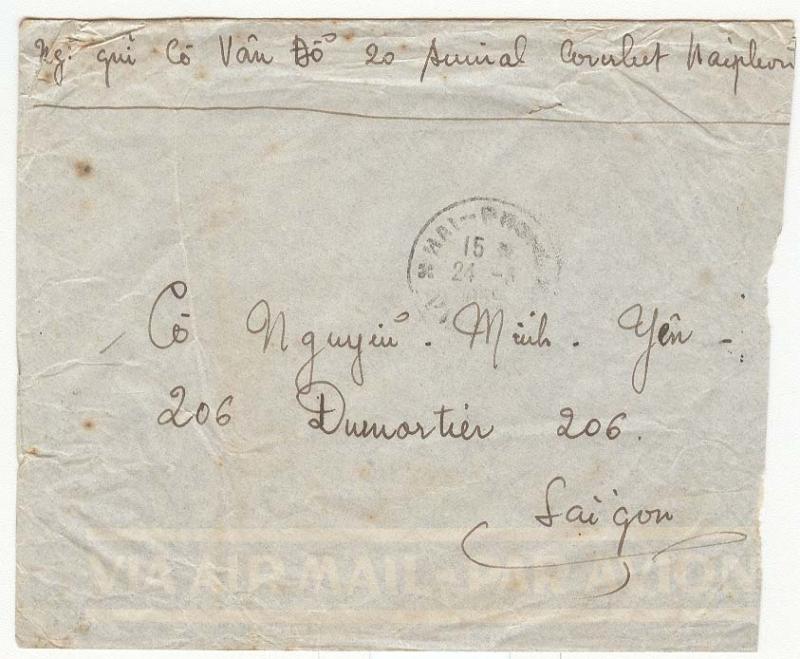 Ng: gửi Cô Vân Đỗ 20 Amiral Courbet Haiphong
HAI-PHONG
15
24 -
Cô Nguyễn. Minh. Yên -
206 Dumortier 206.
Saigon
VIA AIR MAIL - PAR AVION